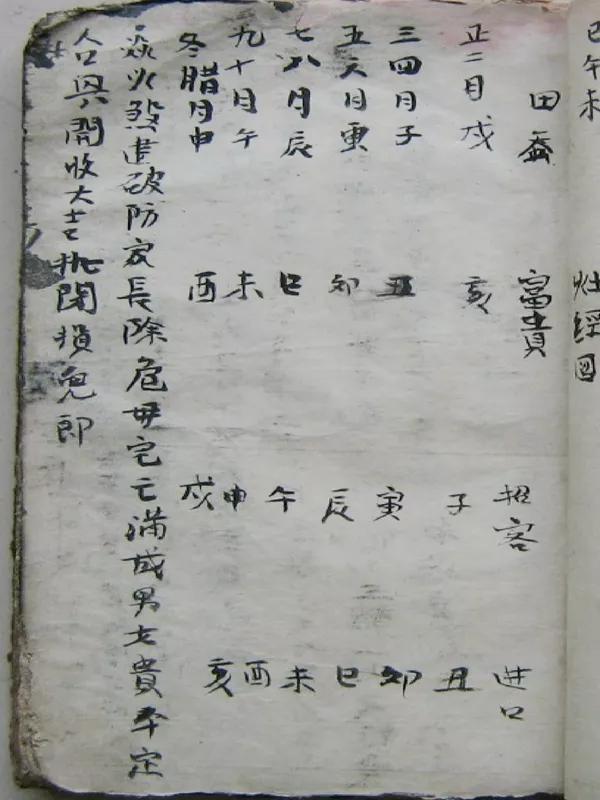 巳午未 灶經図
田蚕 富貴 招客 进口
正二月戌 亥 子 丑
三四月子 丑 寅 卯
五六月寅 卯 辰 巳
七八月辰 巳 午 未
九十月午 未 申 酉
冬腊月申 酉 戌 亥
焱火煞建破防家長除危毋宅亡满成男女貴平定
合與開收大吉执閉損兒郎